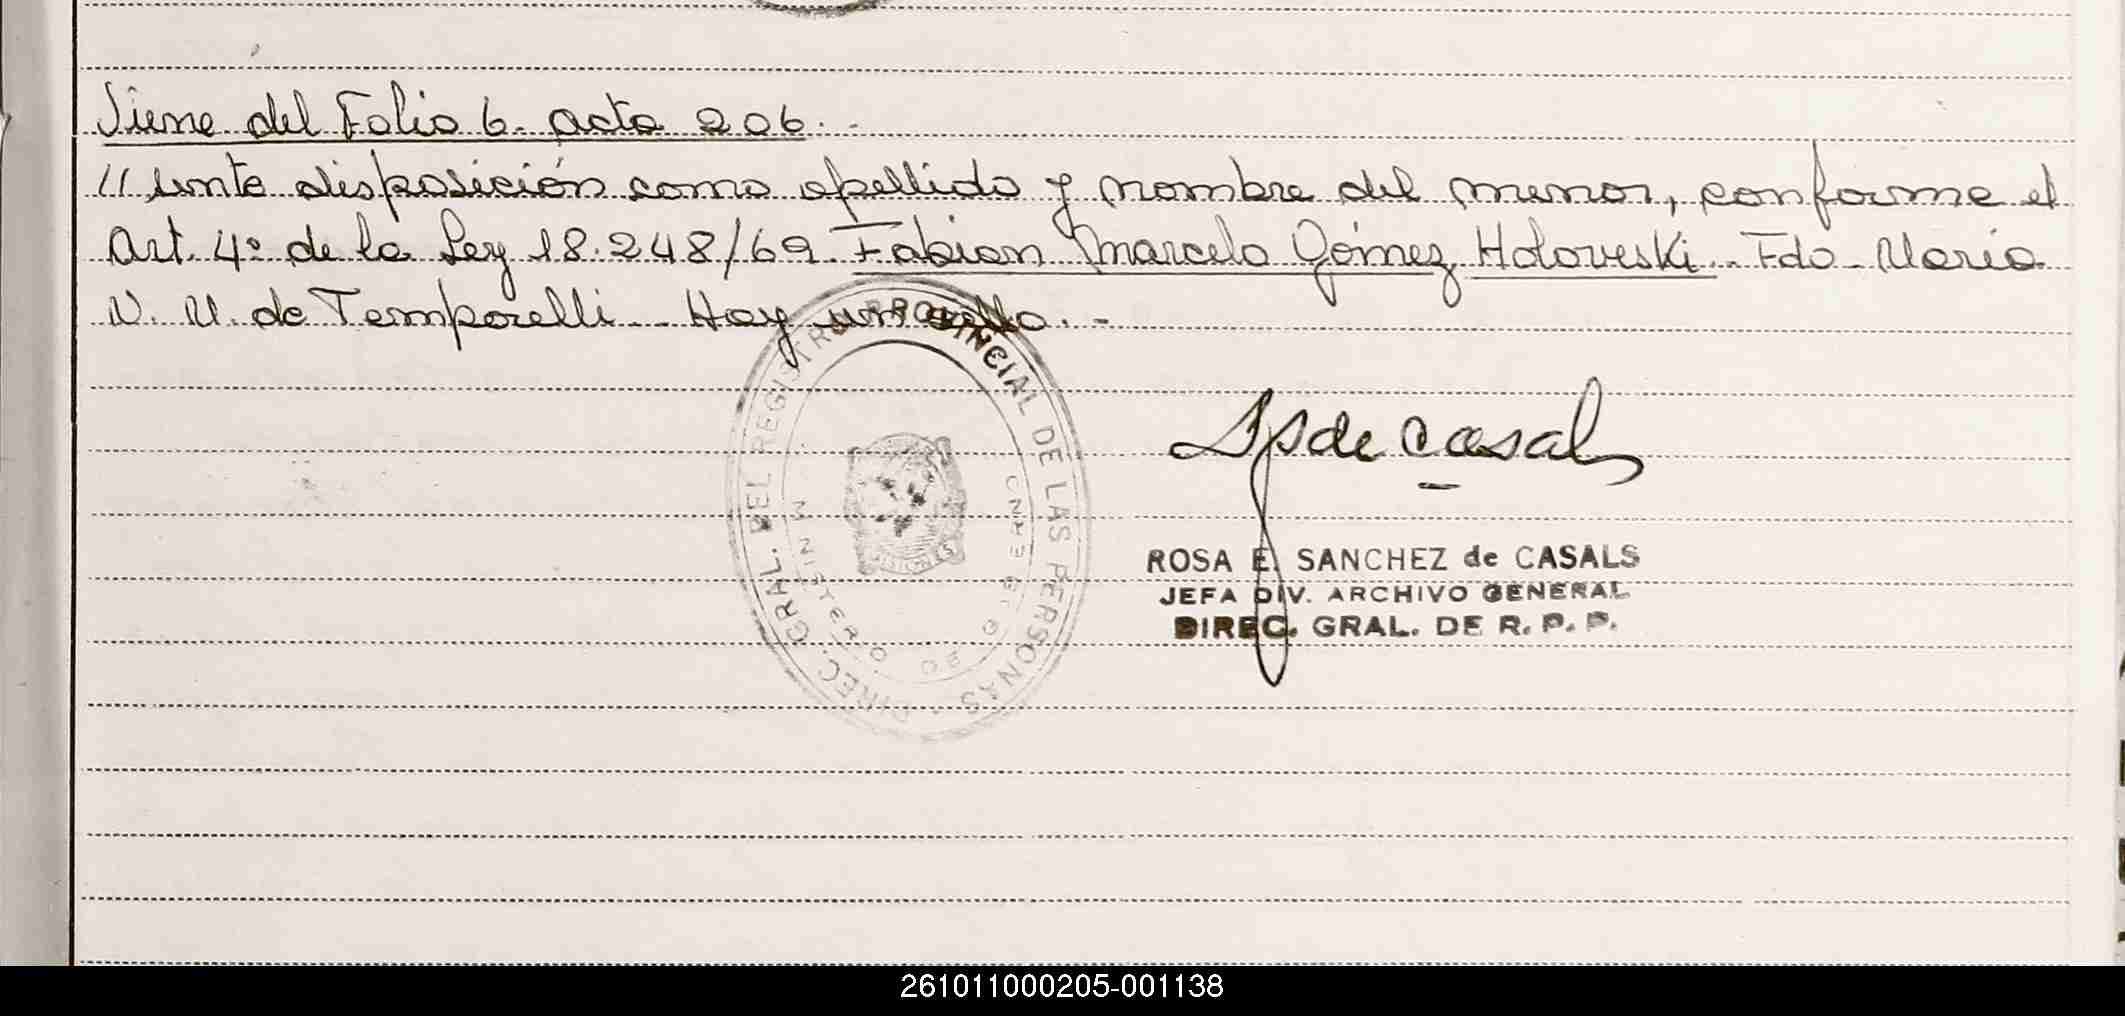 Viene del Folio 6. acta 206. -
// sente disposición como apellido y nombre del menor, conforme el
Art. 4º de la Ley 18.248/69 Fabian Marcelo Gómez Holoveski.- Fdo- Maria
N. U. de Temporelli - Hay un sello. -
DIREC. GRAL. DEL REGISTRO PROVINCIAL DE LAS PERSONAS -
MINISTERO DE GOBIERNO
S de Casals
ROSA E. SANCHEZ de CASALS
JEFA DIV. ARCHIVO GENERAL
DIREC. GRAL. DE R. P. P.
261011000205-001138